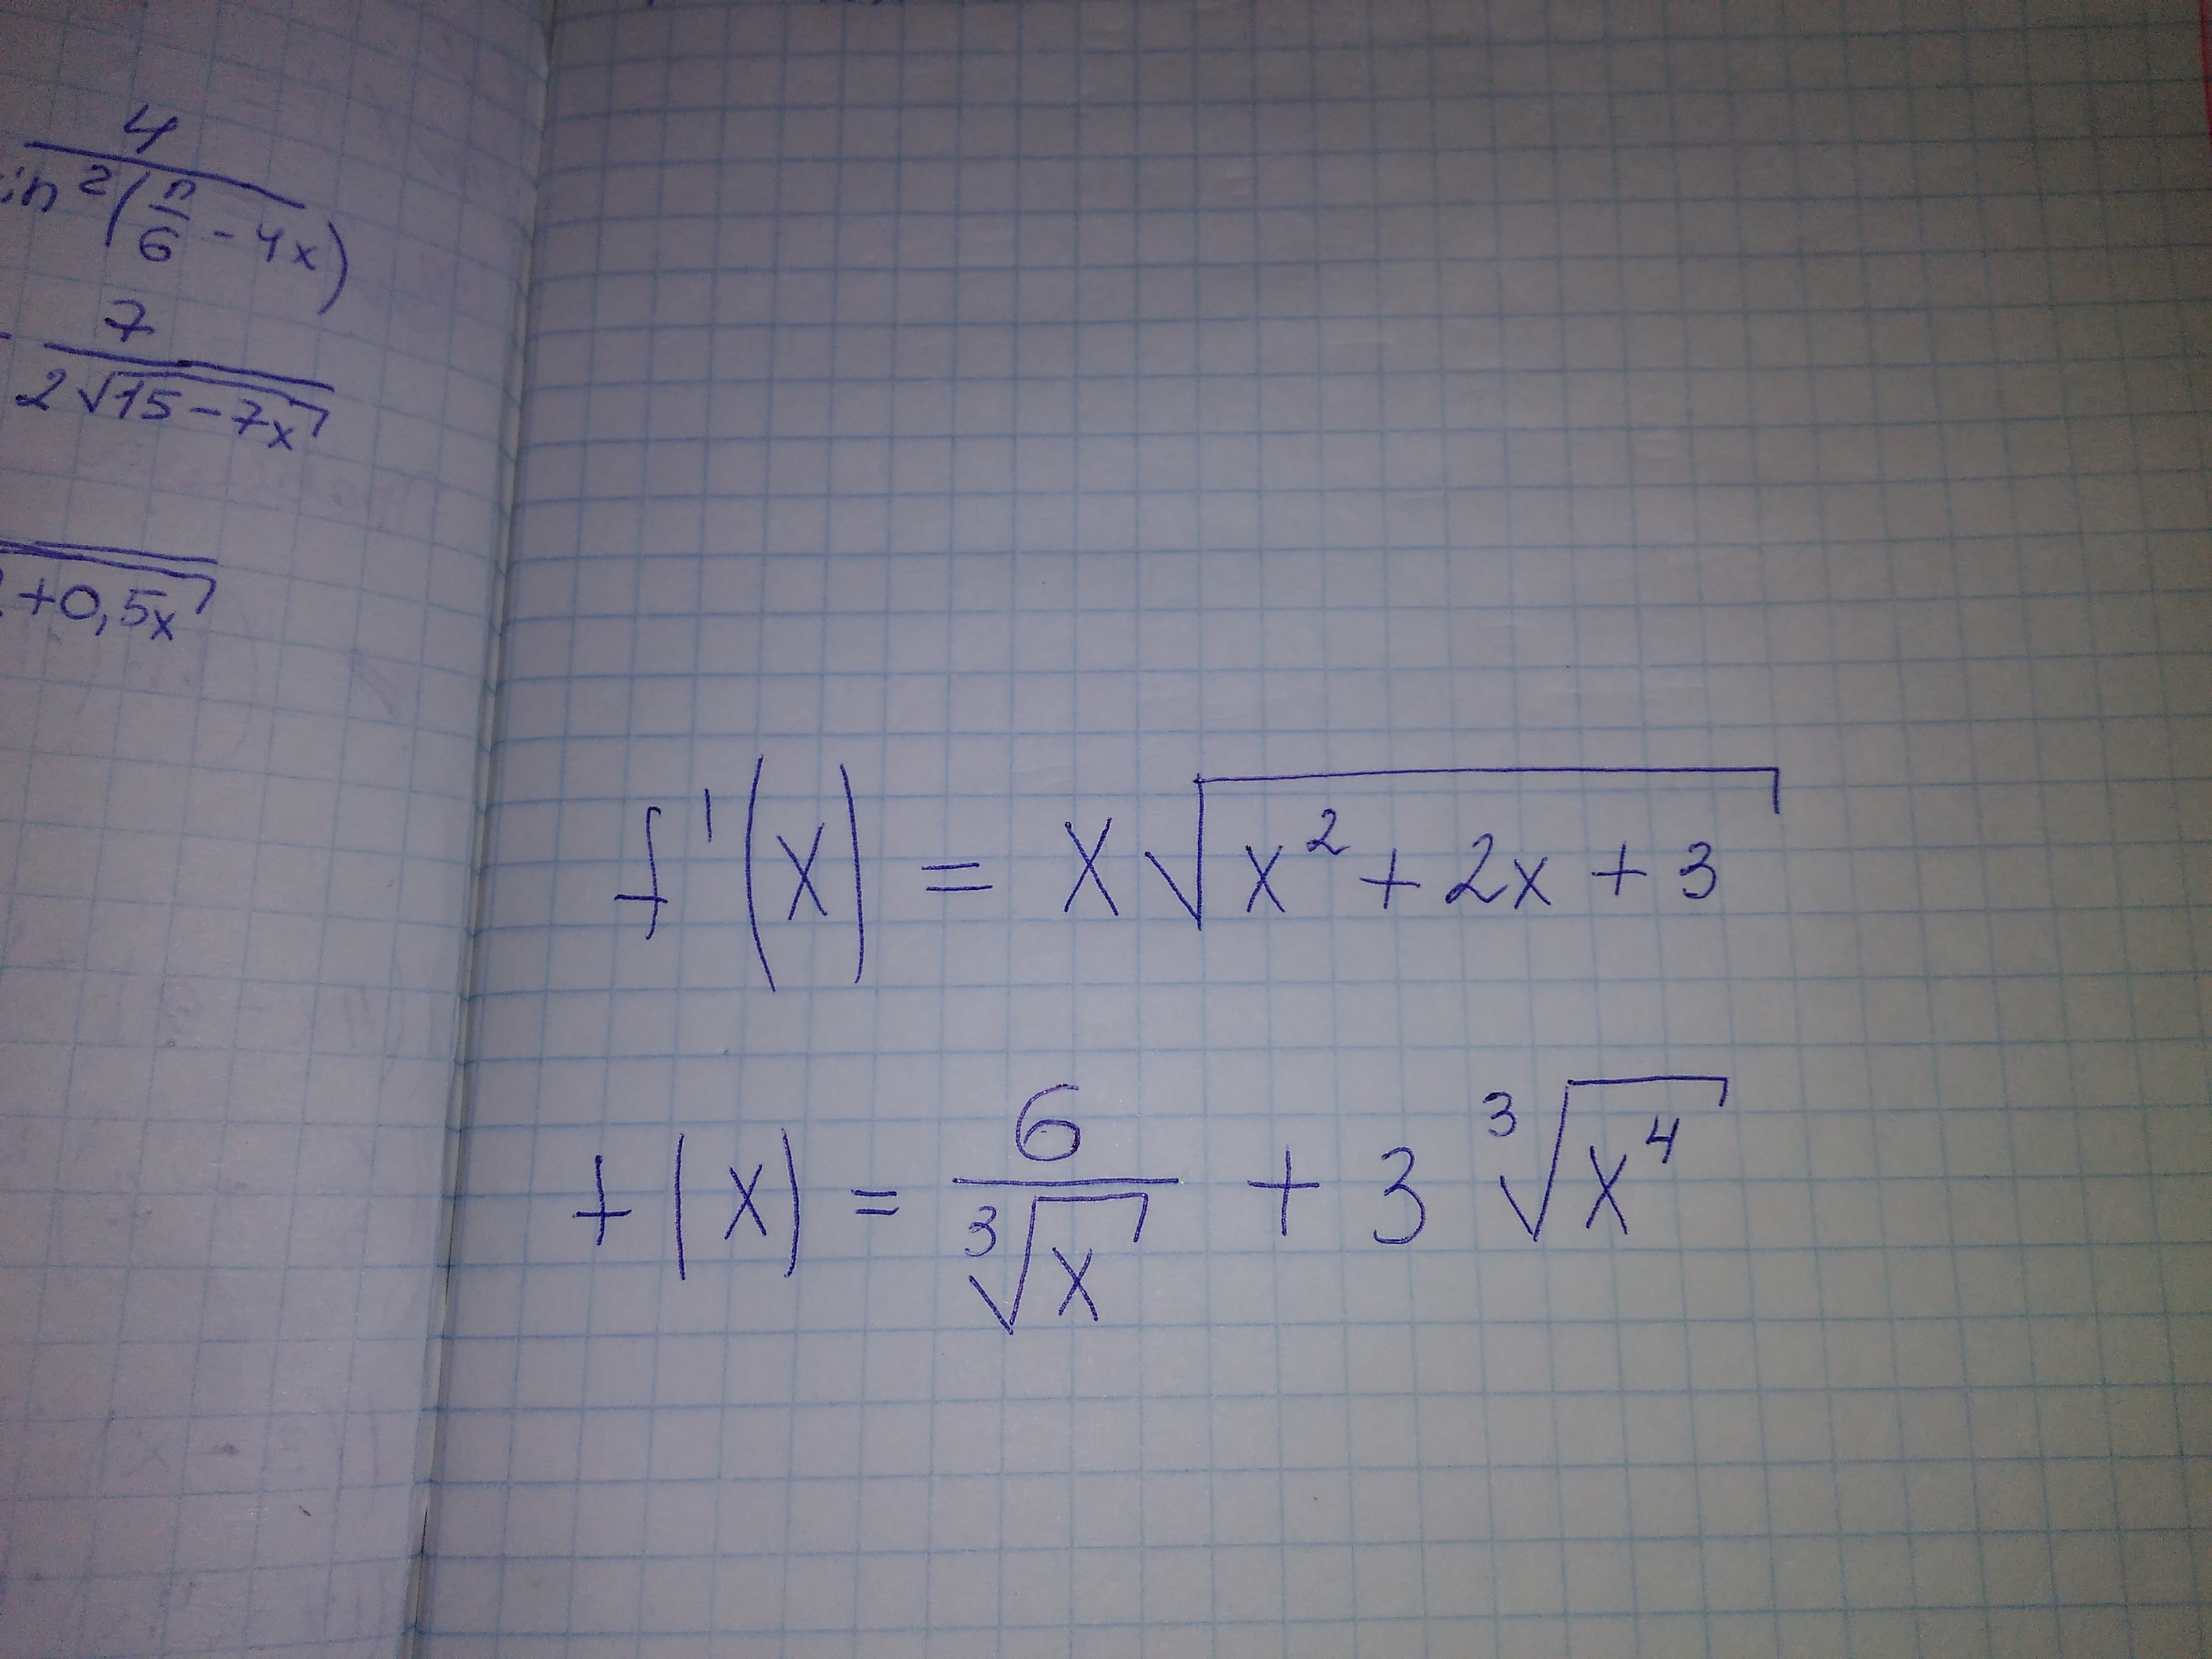 4
sin²(π/6 - 4x)
- 7
2√(15-7x)
+0,5x
f'(x) = x√(x² + 2x + 3)
f(x) = 6/∛x + 3 ∛(x⁴)